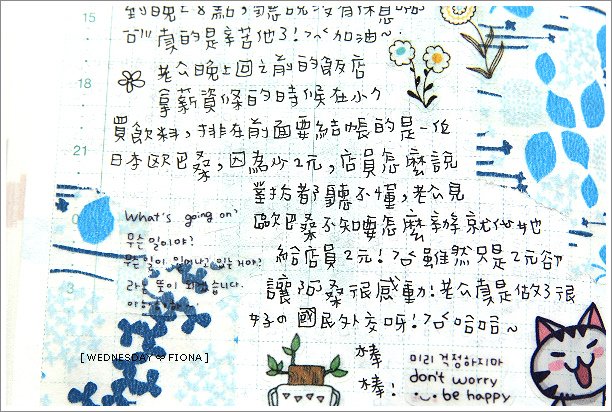 到晚上8點,聽說沒有休息啊
真的是辛苦他了!加油~
15
老公晚上回之前的飯店
18
拿薪資條的時候在小7
買飲料,排在前面要結帳的是一位
21
日本歐巴桑,因為少2元,店員怎麼說
對方都聽不懂,老公見
歐巴桑不知要怎麼辦就他地
給店員2元!雖然只是2元卻
讓阿桑很感動!老公真是做了很
好の國民外交呀!哈哈~
棒
棒!
What's going on?
무슨 일이야?
무슨 일이 일어나고 있는거야?
라는 뜻이 되겠습니다.
3
[ WEDNESDAY FIONA ]
미리 걱정하지마
don't worry
be happy